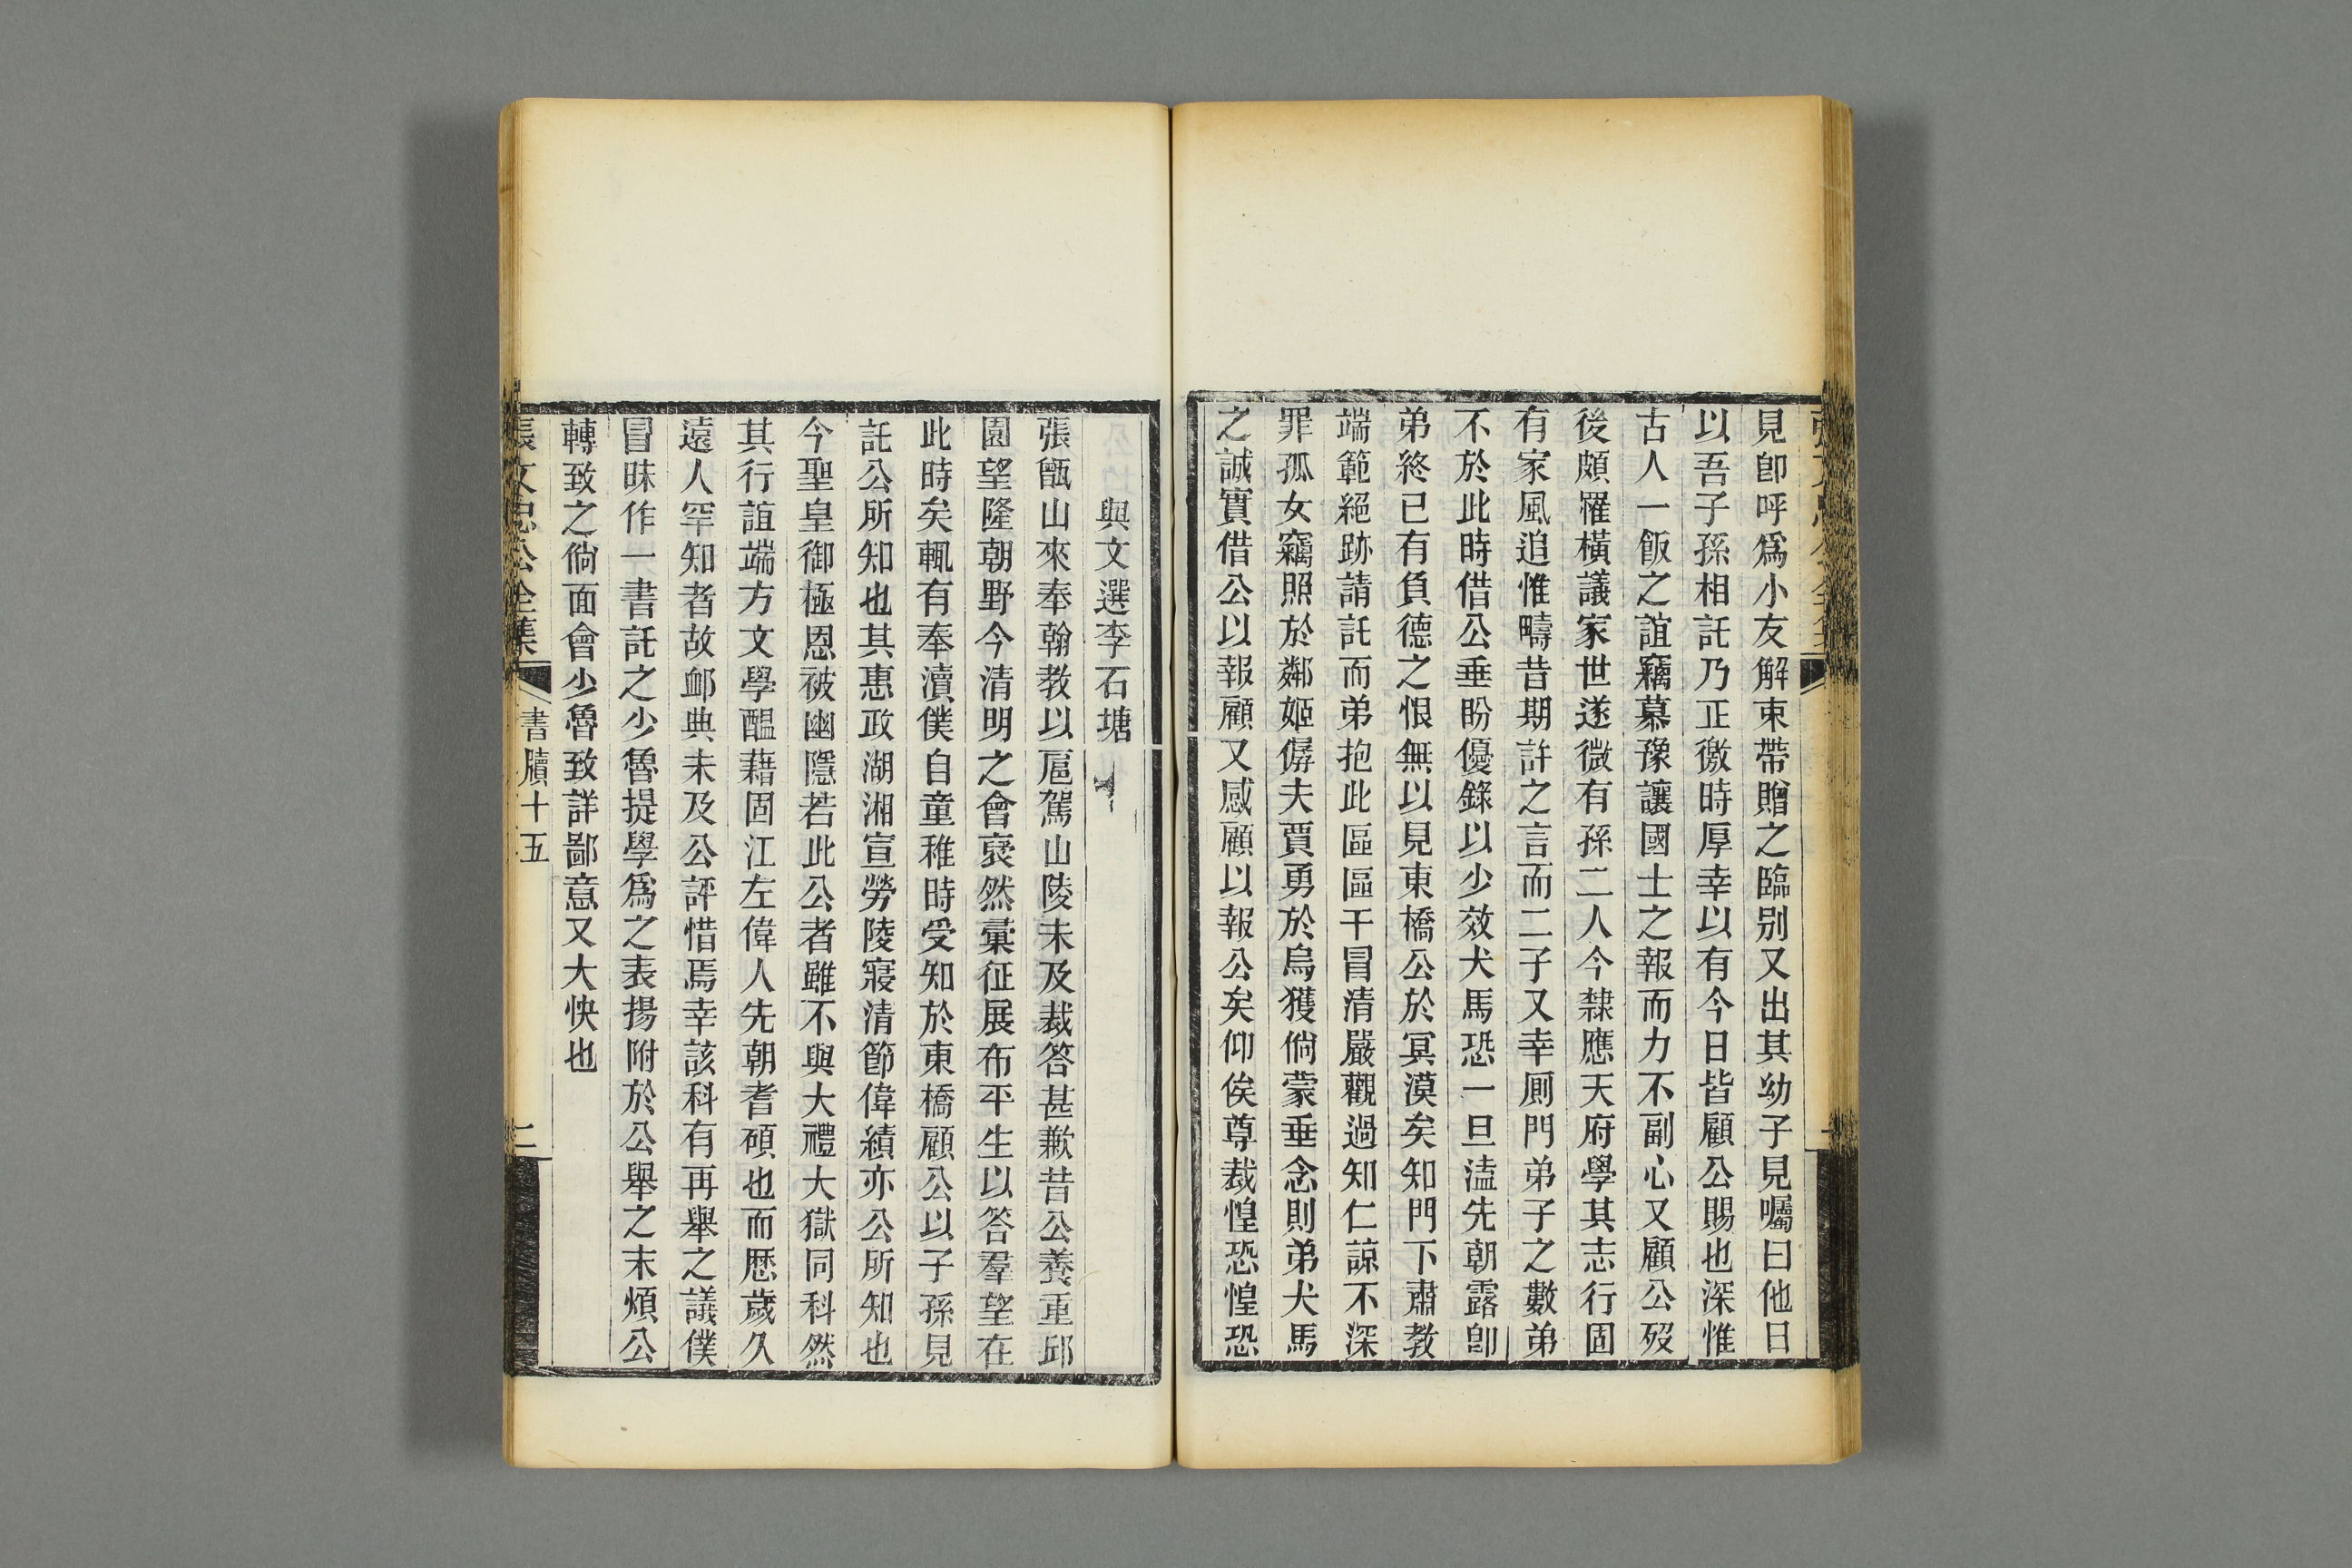 見卽呼爲小友解束帶贈之臨別又出其幼子見囑曰他日
以吾子孫相託乃正徼時厚幸以有今日皆顧公賜也深惟
古人一飯之誼竊慕豫讓國士之報而力不副心又顧公歿
後頗罹橫議家世遂微有孫二人今隸應天府學其志行固
有家風追惟疇昔期許之言而二子又幸厠門弟子之數弟
不於此時借公垂盼優錄以少效犬馬恐一旦溘先朝露卽
弟終已有負德之恨無以見東橋公於冥漠矣知門下肅教
端範絕跡請託而弟抱此區區干冒清嚴觀過知仁諒不深
罪孤女竊照於鄰姬僝夫賈勇於烏獲倘蒙垂念則弟犬馬
之誠實借公以報顧又感顧以報公矣仰俟尊裁惶恐惶恐
與文選李石塘
張甑山來奉翰教以扈駕山陵未及裁答甚歉昔公養重邱
園望隆朝野今清明之會裒然彙征展布平生以答羣望在
此時矣輒有奉瀆僕自童稚時受知於東橋顧公以子孫見
託公所知也其惠政湖湘宣勞陵寢清節偉績亦公所知也
今聖皇御極恩被幽隱若此公者雖不與大禮大獄同科然
其行誼端方文學醞藉固江左偉人先朝耆碩也而歷歲久
遠人罕知者故卹典未及公評惜焉幸該科有再舉之議僕
冒昧作一書託之少魯提學爲之表揚附於公舉之末煩公
轉致之倘面會少魯致詳鄙意又大快也
張文忠公全集 書牘十五 二